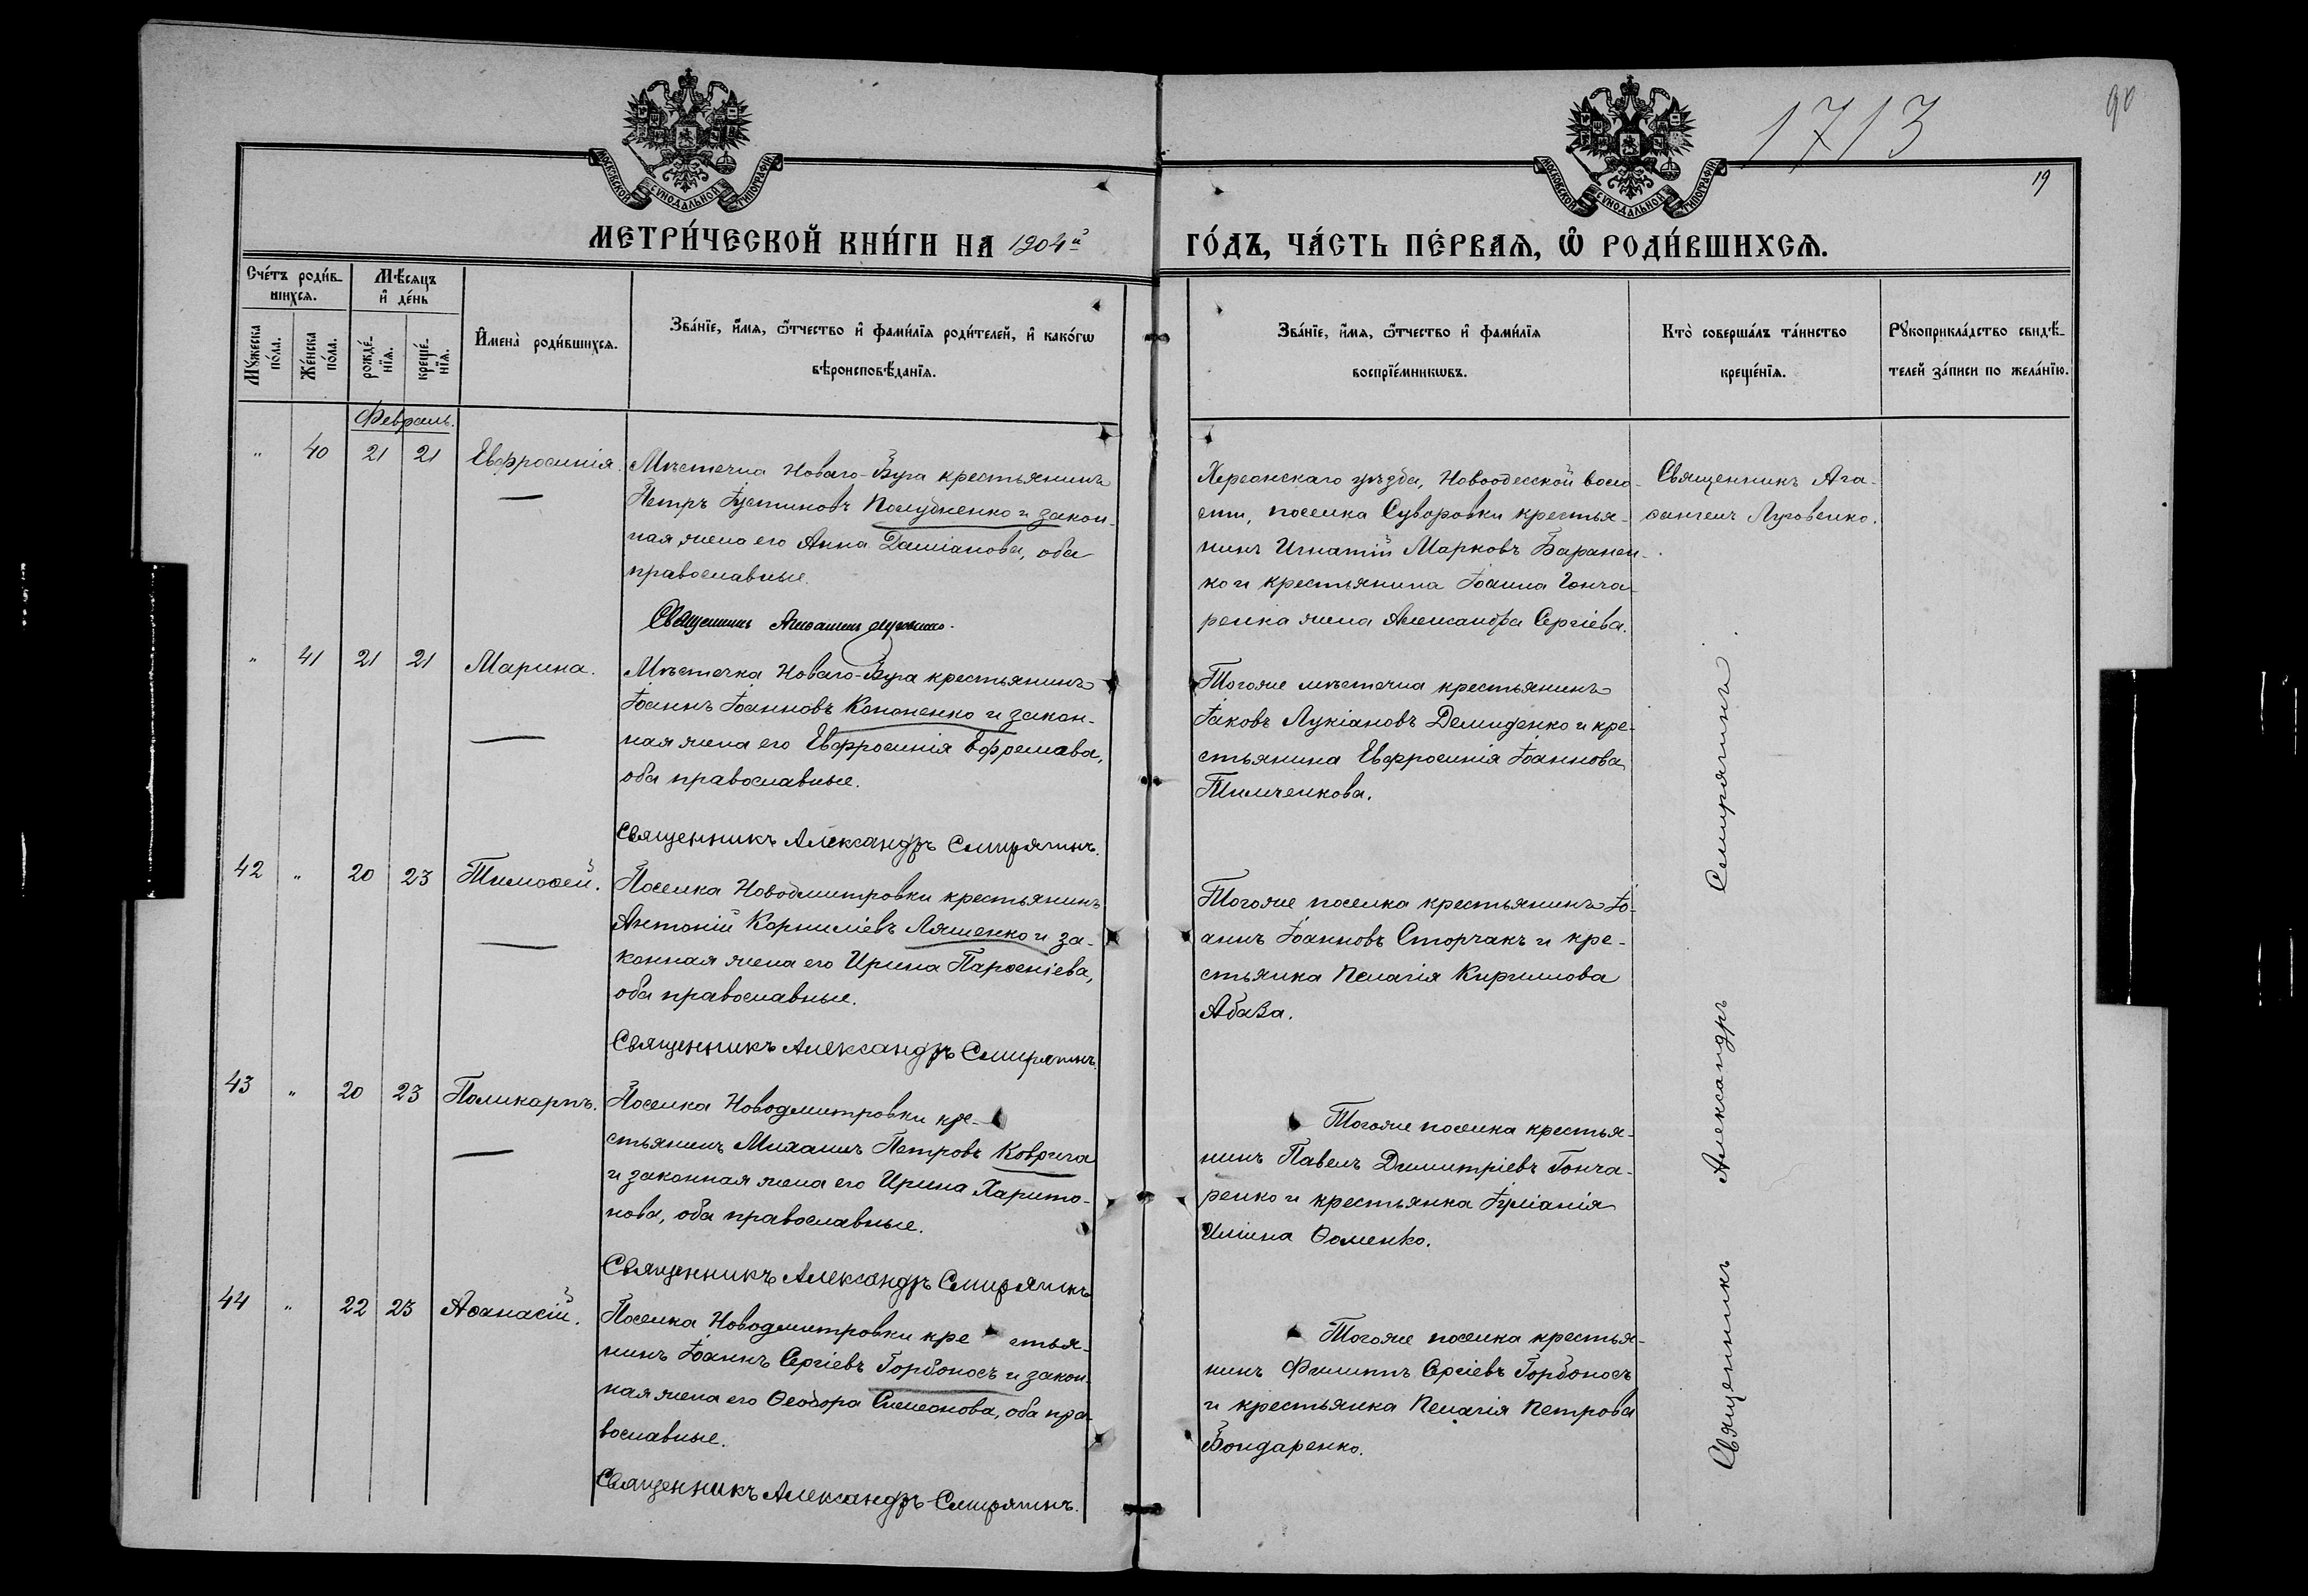 1713
90
19
МОСКОВСКОЙ СУНОДАЛЬНОЙ ТИПОГРАФІИ
МОСКОВСКОЙ СУНОДАЛЬНОЙ ТИПОГРАФІИ
МЕТРИ́ЧЕСКОЙ КНИ́ГИ НА 1904й ГО́ДЪ, ЧА́СТЬ ПЕ́РВАѦ, Ѡ҆ РОДИ́ВШИХСѦ.
Сче́тъ роди́вшихсѧ.
Мѣ́сѧцъ и҆ де́нь
Мꙋ́жеска по́ла.
Же́нска по́ла.
рожде́нїѧ.
креще́нїѧ.
И҆мена̀ роди́вшихсѧ.
Зва́нїе, и҆́мѧ, ѻ҆́тчество и҆ фами́лїѧ роди́телей, и҆ како́гѡ
вѣроисповѣ́данїѧ.
Зва́нїе, и҆́мѧ, ѻ҆́тчество и҆ фами́лїѧ
воспрїе́мникѡвъ.
Кто̀ соверша́лъ та́инство
креще́нїѧ.
Рꙋкоприкла́дство свидѣ́-
телей за́писи по жела́нїю.
Февраль.
" 40 21 21 Евфросинія.
Мѣстечка Новаго-Буга крестьянинъ
Петръ Іустиновъ Полубненко и закон-
ная жена его Анна Даміанова, оба
православные.
Священникъ Агаѳангелъ Луговенко.
Херсонскаго уѣзда, Новоодесской воло-
сти, поселка Суворовки крестья-
нинъ Игнатій Марковъ Баранен-
ко и крестьянина Іоанна Гонча-
ренка жена Александра Сергіева.
Священникъ Ага-
ѳангелъ Луговенко.
" 41 21 21 Марина.
Мѣстечка Новаго-Буга крестьянинъ
Іоаннъ Іоанновъ Кононенко и закон-
ная жена его Евфросинія Ефремова,
оба православные.
Священникъ Александръ Смирягинъ.
Тогоже мѣстечка крестьянинъ
Іаковъ Лукіановъ Демиденко и кре-
стьянина Евфросинія Іоаннова
Тимченкова.
42 " 20 23 Тимоѳей.
Поселка Новодмитровки крестьянинъ
Антоній Корниліевъ Ляшенко и за-
конная жена его Ирина Парѳеніева,
оба православные.
Священникъ Александръ Смирягинъ.
Тогоже поселка крестьянинъ Іо-
аннъ Іоанновъ Сторчакъ и кре-
стьянка Пелагія Кириллова
Абаза.
43 " 20 23 Поликарпъ.
Поселка Новодмитровки кре-
стьянинъ Михаилъ Петровъ Коврига
и законная жена его Ирина Харито-
нова, оба православные.
Священникъ Александръ Смирягинъ
Тогоже поселка крестья-
нинъ Павелъ Димитріевъ Гонча-
ренко и крестьянка Іуліанія
Ильина Ѳоменко.
44 " 22 23 Аѳанасій.
Поселка Новодмитровки кре стья-
нинъ Іоаннъ Сергіевъ Горбоносъ и закон-
ная жена его Ѳеодора Симеонова, оба пра-
вославные.
Священникъ Александръ Смирягинъ.
Тогоже поселка крестья-
нинъ Филиппъ Сергіевъ Горбоносъ
и крестьянка Пелагія Петрова
Бондаренко.
Священникъ Александръ Смирягинъ.